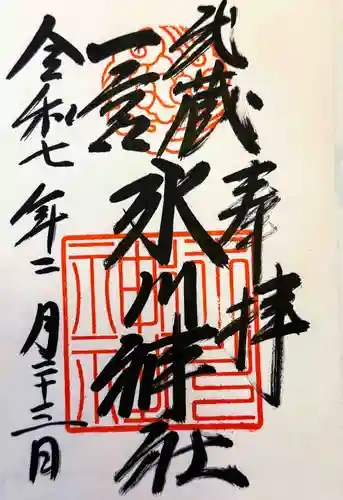 奉拝
武蔵
一宮
氷川神社
令和七年二月二十二日
氷川神社